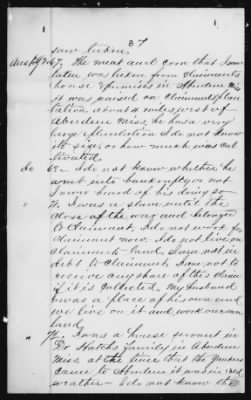 37
saw taken.
67, The meat and corn that I saw
taken was taken from claimants
house & premises in Aberdeen Miss
it was raised on claimants plan
tation about 4 miles west of
Aberdeen Miss, he has a very
large plantation I do not know
its size or how much was cul
tivated.
Do 68 - I do not know whether he
went into bankruptcy or not
never heard of his doing so
I was a slave until the
close of the war and belonged
to Claimant, I do not work for
claimant now. I do not live on
claimants land, I am not in
debt to claimant I am not to
receive any share of this claim
if it is collected. My husband
has a place of his own and
we live on it and work our own
land.
I was a house servant in
Dr Hatchs family in Aberdeen
Miss. at the time that the Yankees
came to Aberdeen it was in cold
weather - I do not know the